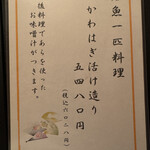 魚一匹料理
かわはぎ活け造り
五四八〇円
(税込六〇二八円)
後料理であらを使った
お味噌汁がつきます。